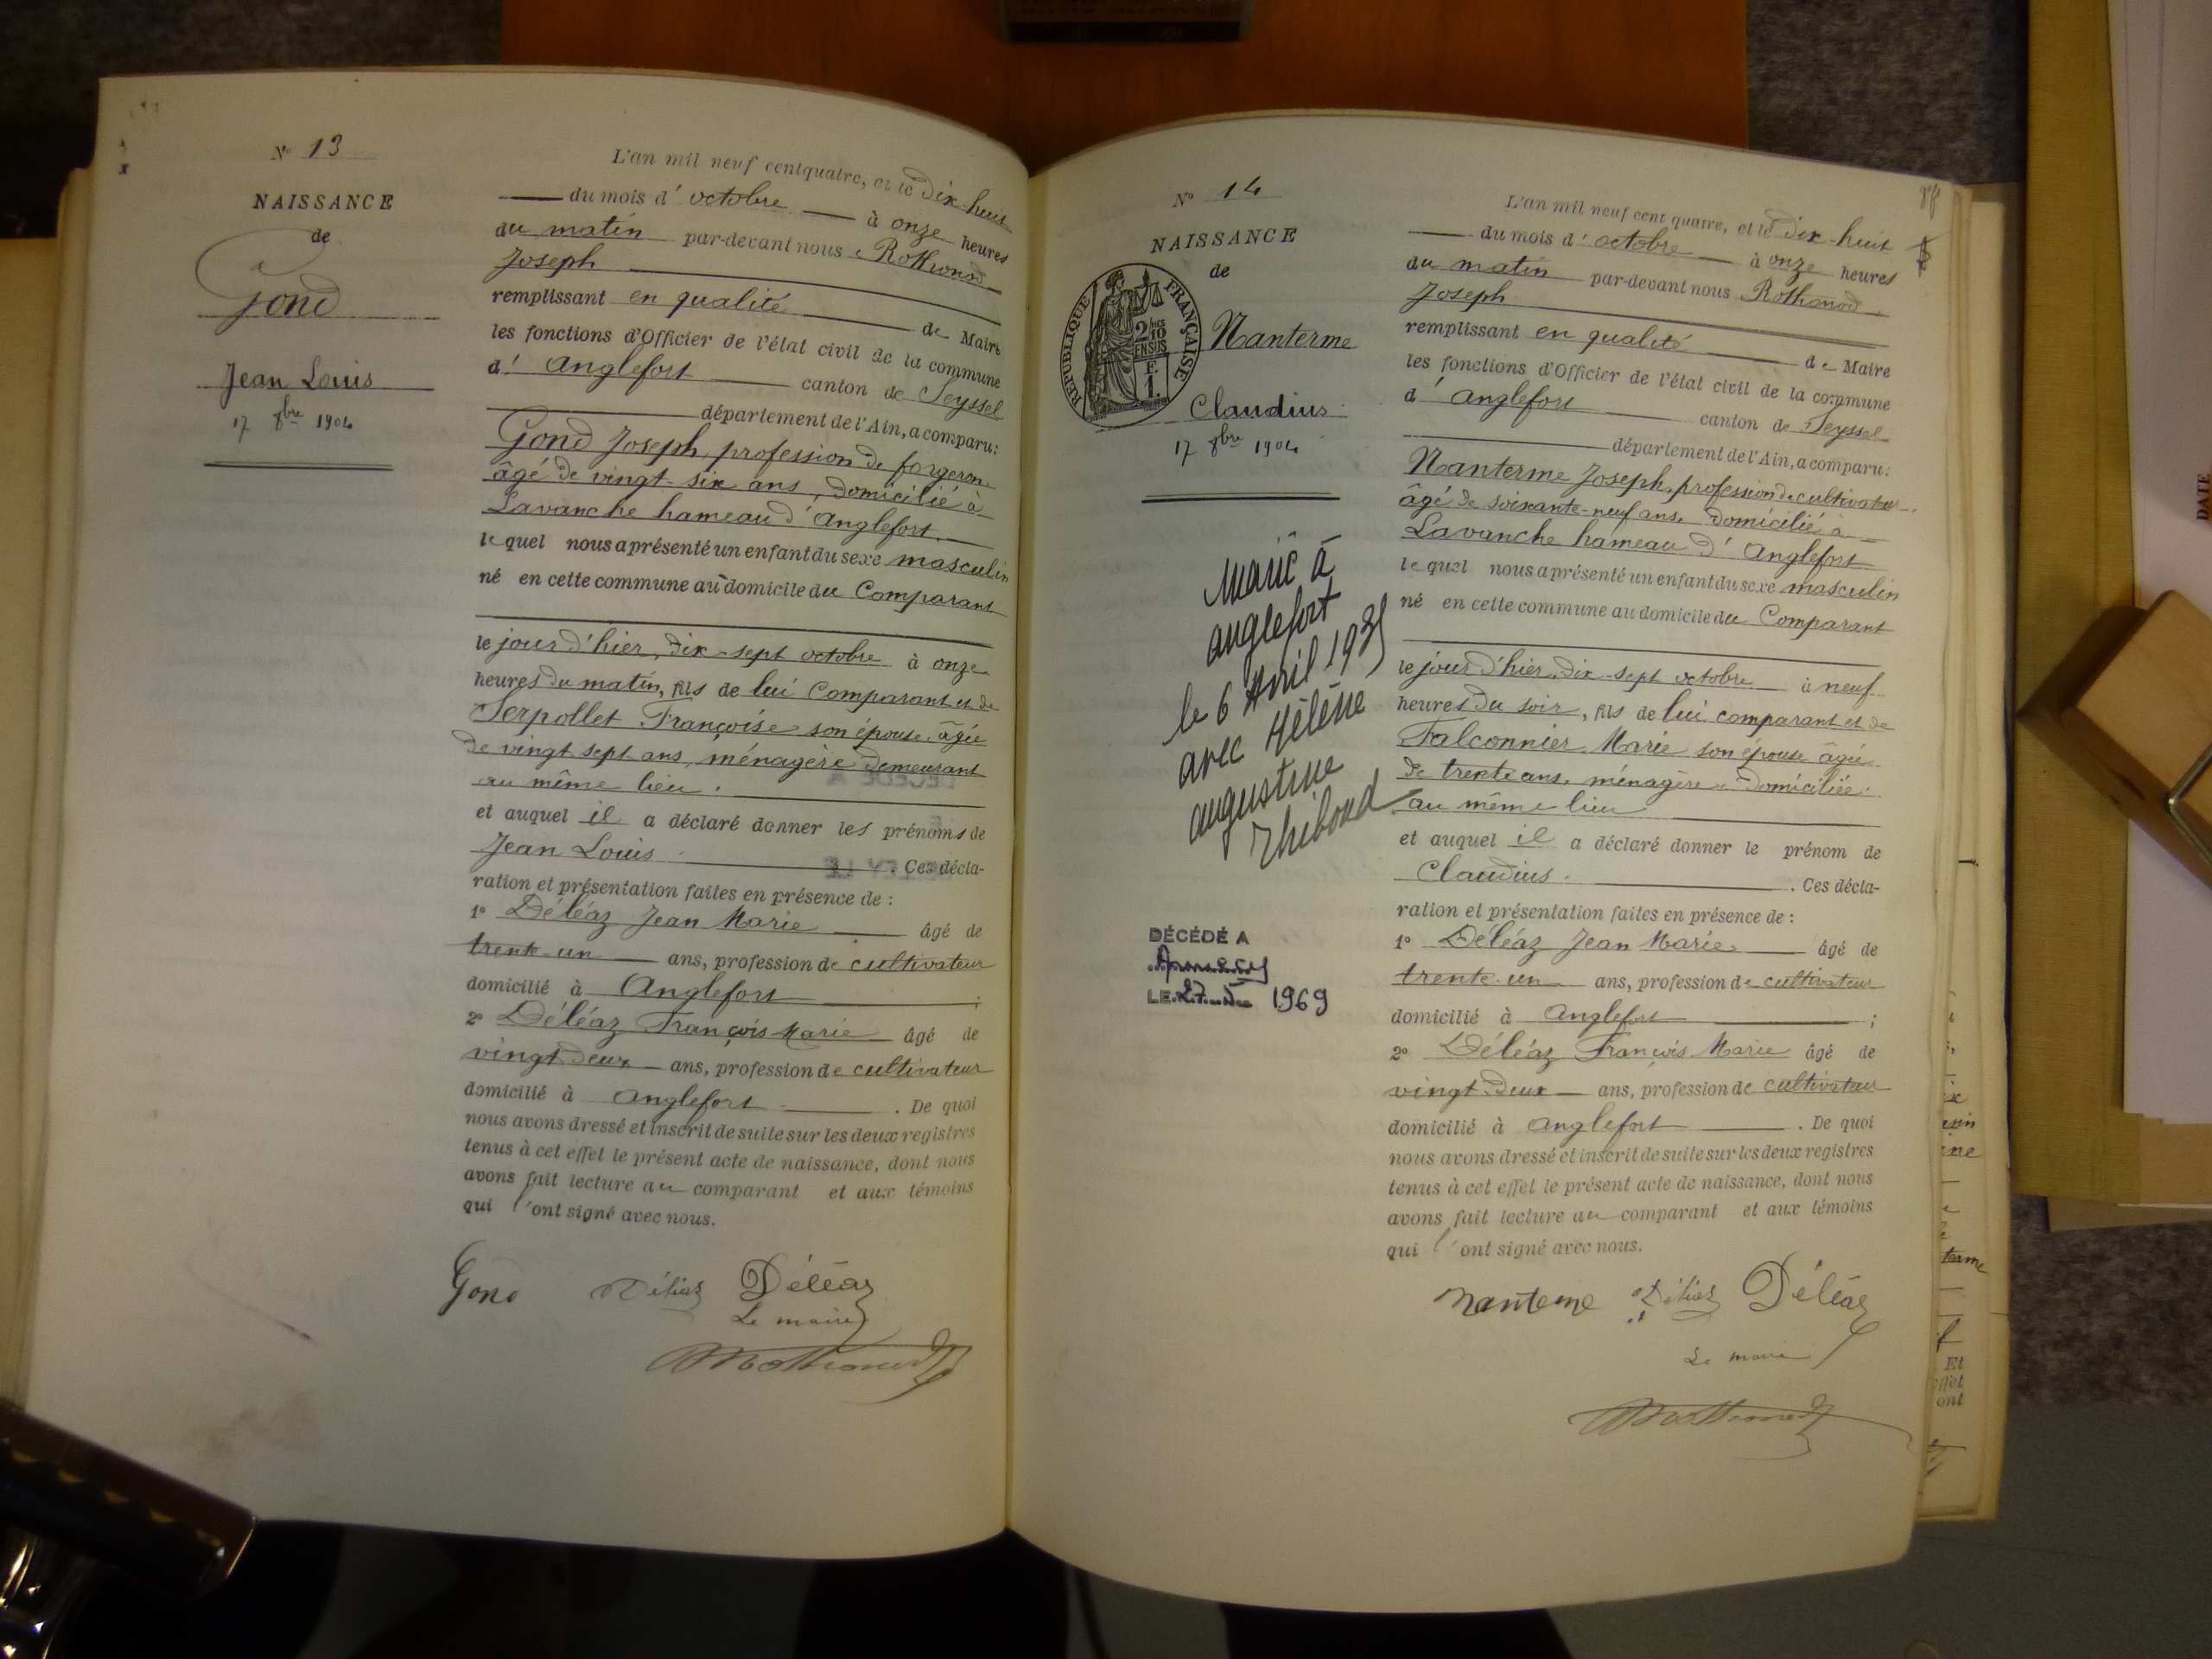 N° 13
NAISSANCE
de
Gond
Jean Louis
17 8bre 1904
L'an mil neuf cent quatre, et le Dix-huit
du mois d'octobre à onze heures
du matin par-devant nous Rothonod
Joseph
remplissant en qualité de Maire
les fonctions d'Officier de l'état civil de la commune
d'Anglefort canton de Seyssel
département de l'Ain, a comparu:
Gond Joseph, profession de forgeron
âgé de vingt-six ans, domicilié à
Lavanche hameau d'Anglefort.
lequel nous a présenté un enfant du sexe masculin
né en cette commune au domicile du Comparant
le jour d'hier, dix-sept octobre à onze
heures du matin, fils de lui Comparant et de
Serpollet Françoise son épouse âgée
de vingt sept ans, ménagère demeurant
au même lieu.
et auquel il a déclaré donner les prénoms de
Jean Louis. Ces décla-
ration et présentation faites en présence de :
1° Déléaz Jean Marie âgé de
trente-un ans, profession de cultivateur
domicilié à Anglefort ;
2° Déléaz François Marie âgé de
vingt-deux ans, profession de cultivateur
domicilié à Anglefort. De quoi
nous avons dressé et inscrit de suite sur les deux registres
tenus à cet effet le présent acte de naissance, dont nous
avons fait lecture au comparant et aux témoins
qui l'ont signé avec nous.
Gond Déléaz Déléaz
Le maire
Rothonod
N° 14
NAISSANCE
de
RÉPUBLIQUE FRANÇAISE
2/10
EN SUS
F.
1.
Nanterme
Claudius
17 8bre 1904
Marié à
anglefort
le 6 Avril 1935
avec Hélène
augustine
Thiboud
DÉCÉDÉ A
Annecy
LE 27 1969
L'an mil neuf cent quatre, et le dix-huit
du mois d'octobre à onze heures
du matin par-devant nous Rothonod
Joseph
remplissant en qualité de Maire
les fonctions d'Officier de l'état civil de la commune
d'Anglefort canton de Seyssel
département de l'Ain, a comparu:
Nanterme Joseph, profession de cultivateur
âgé de soixante-neuf ans, domicilié à
Lavanche hameau d'Anglefort
lequel nous a présenté un enfant du sexe masculin
né en cette commune au domicile du Comparant
le jour d'hier, dix-sept octobre à neuf
heures du soir, fils de lui comparant et de
Falconnier Marie son épouse âgée
de trente ans, ménagère domiciliée
au même lieu
et auquel il a déclaré donner le prénom de
Claudius. Ces décla-
ration et présentation faites en présence de :
1° Déléaz Jean Marie âgé de
trente-un ans, profession de cultivateur
domicilié à Anglefort ;
2° Déléaz François Marie âgé de
vingt-deux ans, profession de cultivateur
domicilié à Anglefort. De quoi
nous avons dressé et inscrit de suite sur les deux registres
tenus à cet effet le présent acte de naissance, dont nous
avons fait lecture au comparant et aux témoins
qui l'ont signé avec nous.
Nanterme Déléaz Déléaz
Le maire
Rothonod
DATE